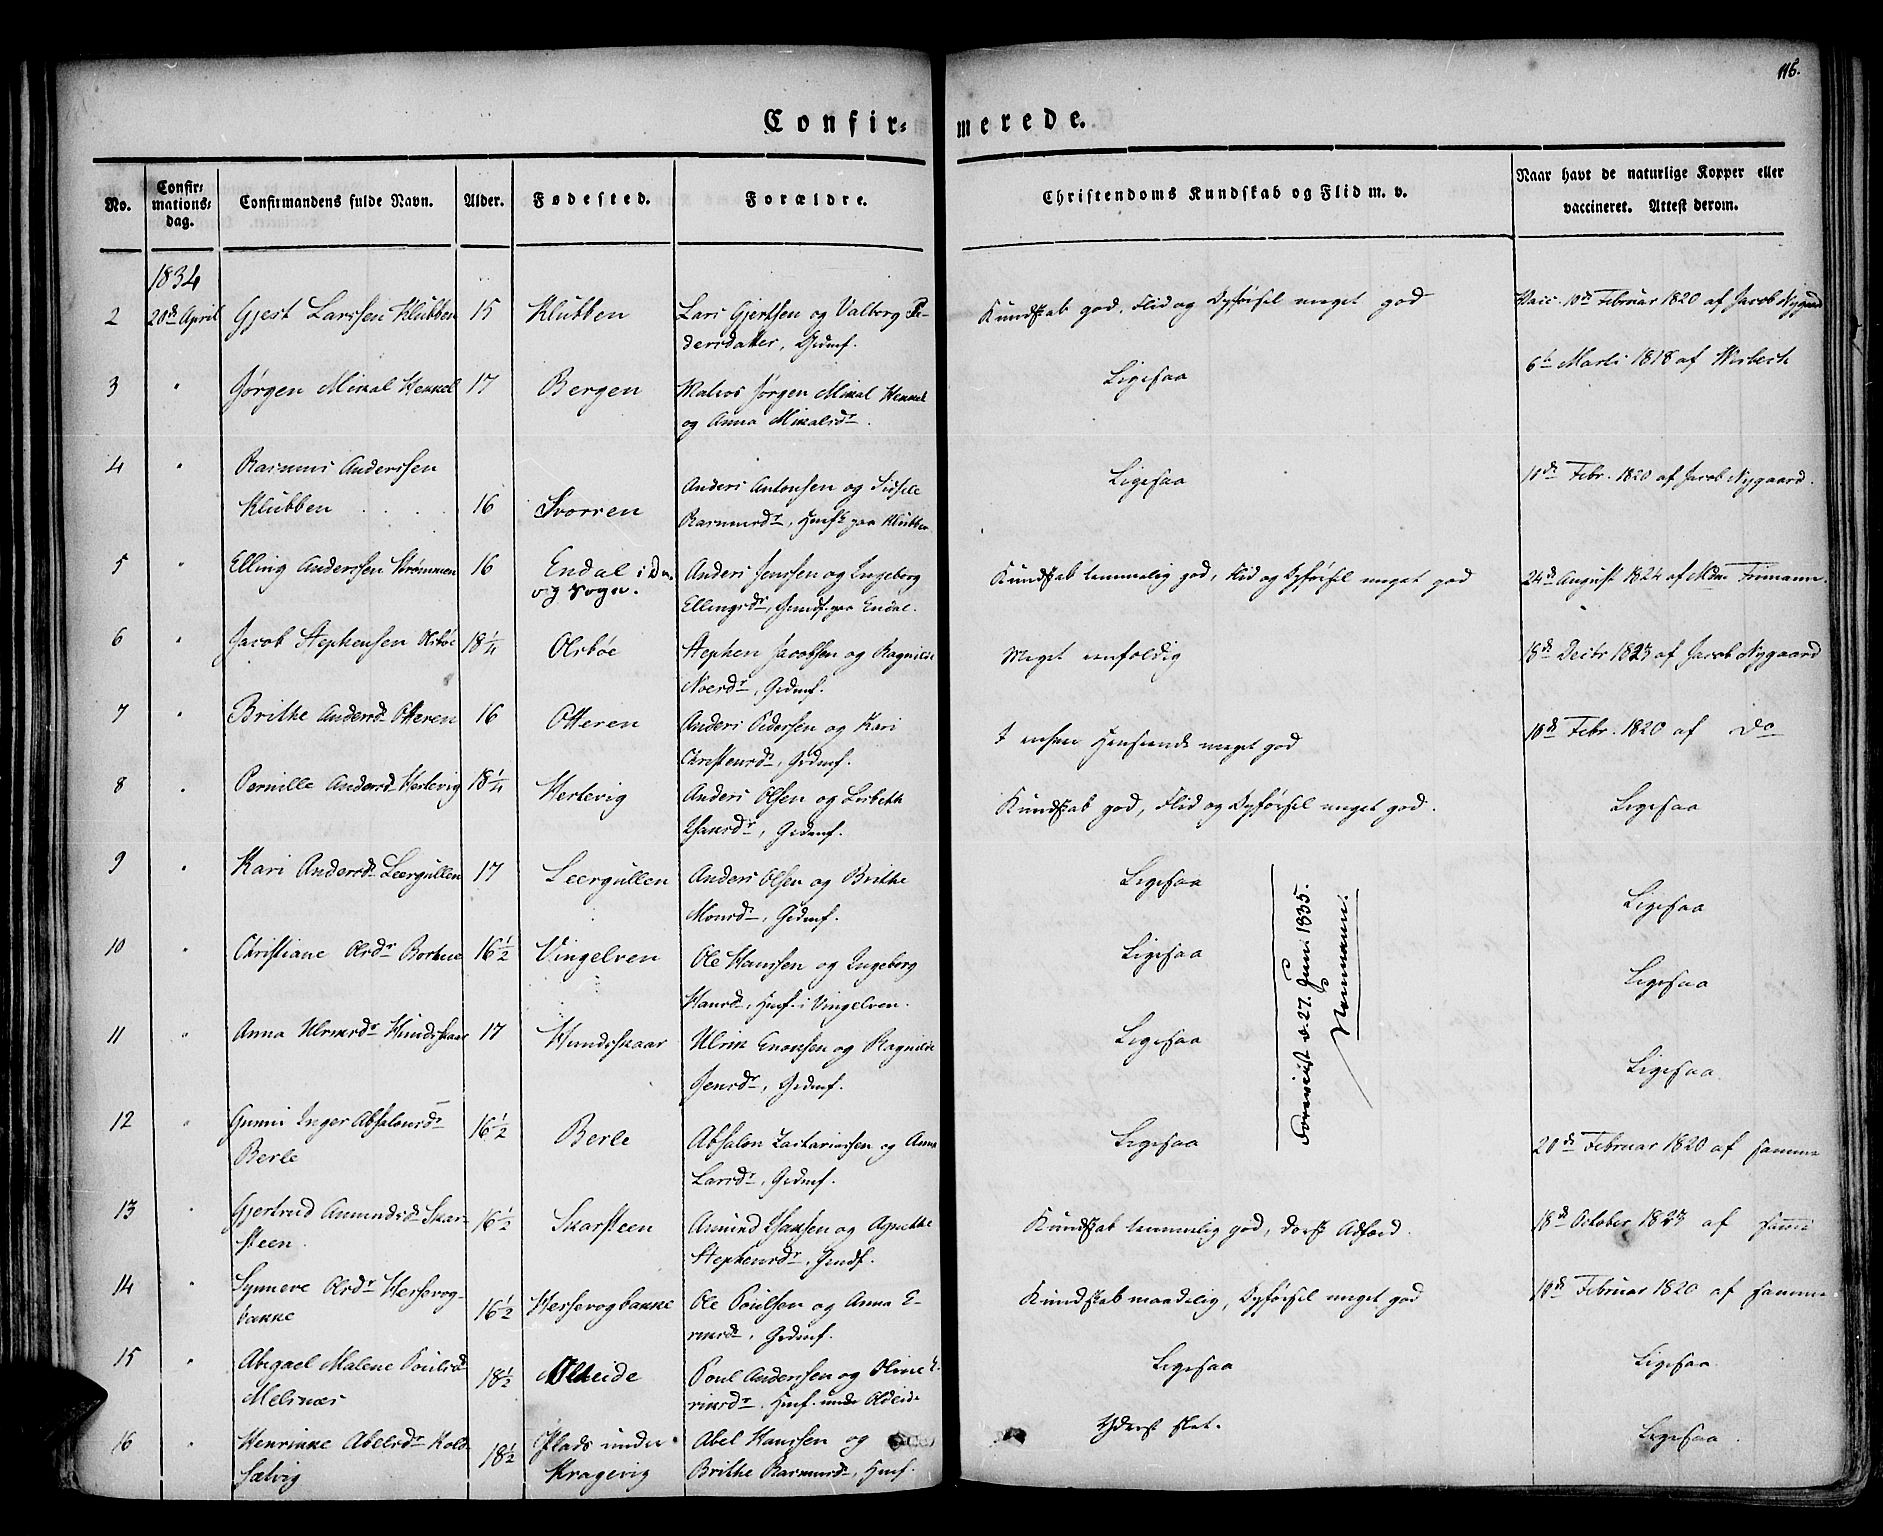 116.
Confir= merede.
No.
Confir=
mations=
dag.
Confirmandens fulde Navn.
Alder.
Fødested.
Forældre.
Christendoms Kundskab og Flid m. v.
Naar havt de naturlige Kopper eller
vaccineret. Attest derom.
1834
2 20de April Gjert Larssen Klubben 15 Klubben Lars Gjertsen og Valborg Pe-
dersdatter, Gdmf.
Kundskab god, Flid og Opførsel meget god
Vacc. 10de Februar 1820 af Jacob Nygaard
3 " Jørgen Mikal Henkel 17 Bergen Matros Jørgen Mikal Henkel
og Anna Mikalsdr.
Ligesaa
6te Marti 1818 af Wisbech
4 " Rasmus Anderssen
Klubben 16 Svorren Anders Antonsen og Sidsele
Rasmusdr, Hmfk paa Klubben
Ligesaa
10de Febr. 1820 af Jacob Nygaard.
5 " Elling Anderssen Strømmen 16 Endal i
og Sogn.
Anders Jenssen og Ingeborg
Ellingsdr, Gmdf. paa Endal.
Kundskab temmelig god, Flid og Opførsel meget god
24de August 1824 af Mdm Friman.
6 " Jacob Stephensen Olsbøe 18 1/4 Olsbøe Stephen Jacobsen og Ragnilde
Gdmf.
Meget eenfoldig
18de Decbr 1823 af Jacob Nygaard
7 " Brithe Andersdr Otteren 16 Otteren Anders Pedersen og Kari
Christensdr, Gdmf.
I enhver Henseende meget god
10de Febr. 1820 af Do
8 " Pernille Andersdr Hestevig 18 1/4 Hestevig Anders Olsen og Lisbeth
Hansdr, Gdmf.
Kundskab god, Flid og Opførsel meget god.
Ligesaa
9 " Kari Andersdr Leergullen 17 Leergullen Anders Olsen og Brithe
Monsdr, Gdmf.
Ligesaa
Ligesaa
10 " Christiane Olsdr Bortne 16 1/2 Vingelven Ole Hanssen og Ingeborg
Hansdr, Hmf. i Vingelven.
Ligesaa
Ligesaa
11 " Anna Ulriksdr Hundskaar 17 Hundskaar Ulrik Enonsen og Ragnilde
Jensdr, Gdmf.
Ligesaa
Ligesaa
12 " Gunni Inger Absalonsdr
Berle
16 1/2 Berle Absalon Zachariassen og Anna
Larsdr, Gdmf.
Ligesaa
20de Februar 1820 af samme
13 " Gjertrud Amundsdr Skar-
steen
16 1/2 Skarsteen Amund Hansen og Agnethe
Stephensdr, Gmdf.
Kundskab temmelig god, dorsk Adfærd.
18de October 1823 af samme
14 " Synneve Olsdr Hessevog-
bakke
16 1/2 Hessevogbakke Ole Poulsen og Anna E-
riksdr, Gdmf.
Kundskab maadelig, Opførsel meget god
10de Februar 1820 af samme
15 " Abigael Malene Poulsdr
Melsnæs
18 1/2 Oldeide Poul Anderssen og Oline E-
riksdr. Hmf. under Oldeide
Ligesaa
Ligesaa
16 " Henrikke Abelsdr Kold-
sætvig
18 1/2 Plads under
Kragevig
Abel Hanssen og
Brithe Rasmusdr, Hmf.
Yderst slet.
Ligesaa.
Foreviist d. 27. Juni 1835.
Neumann.